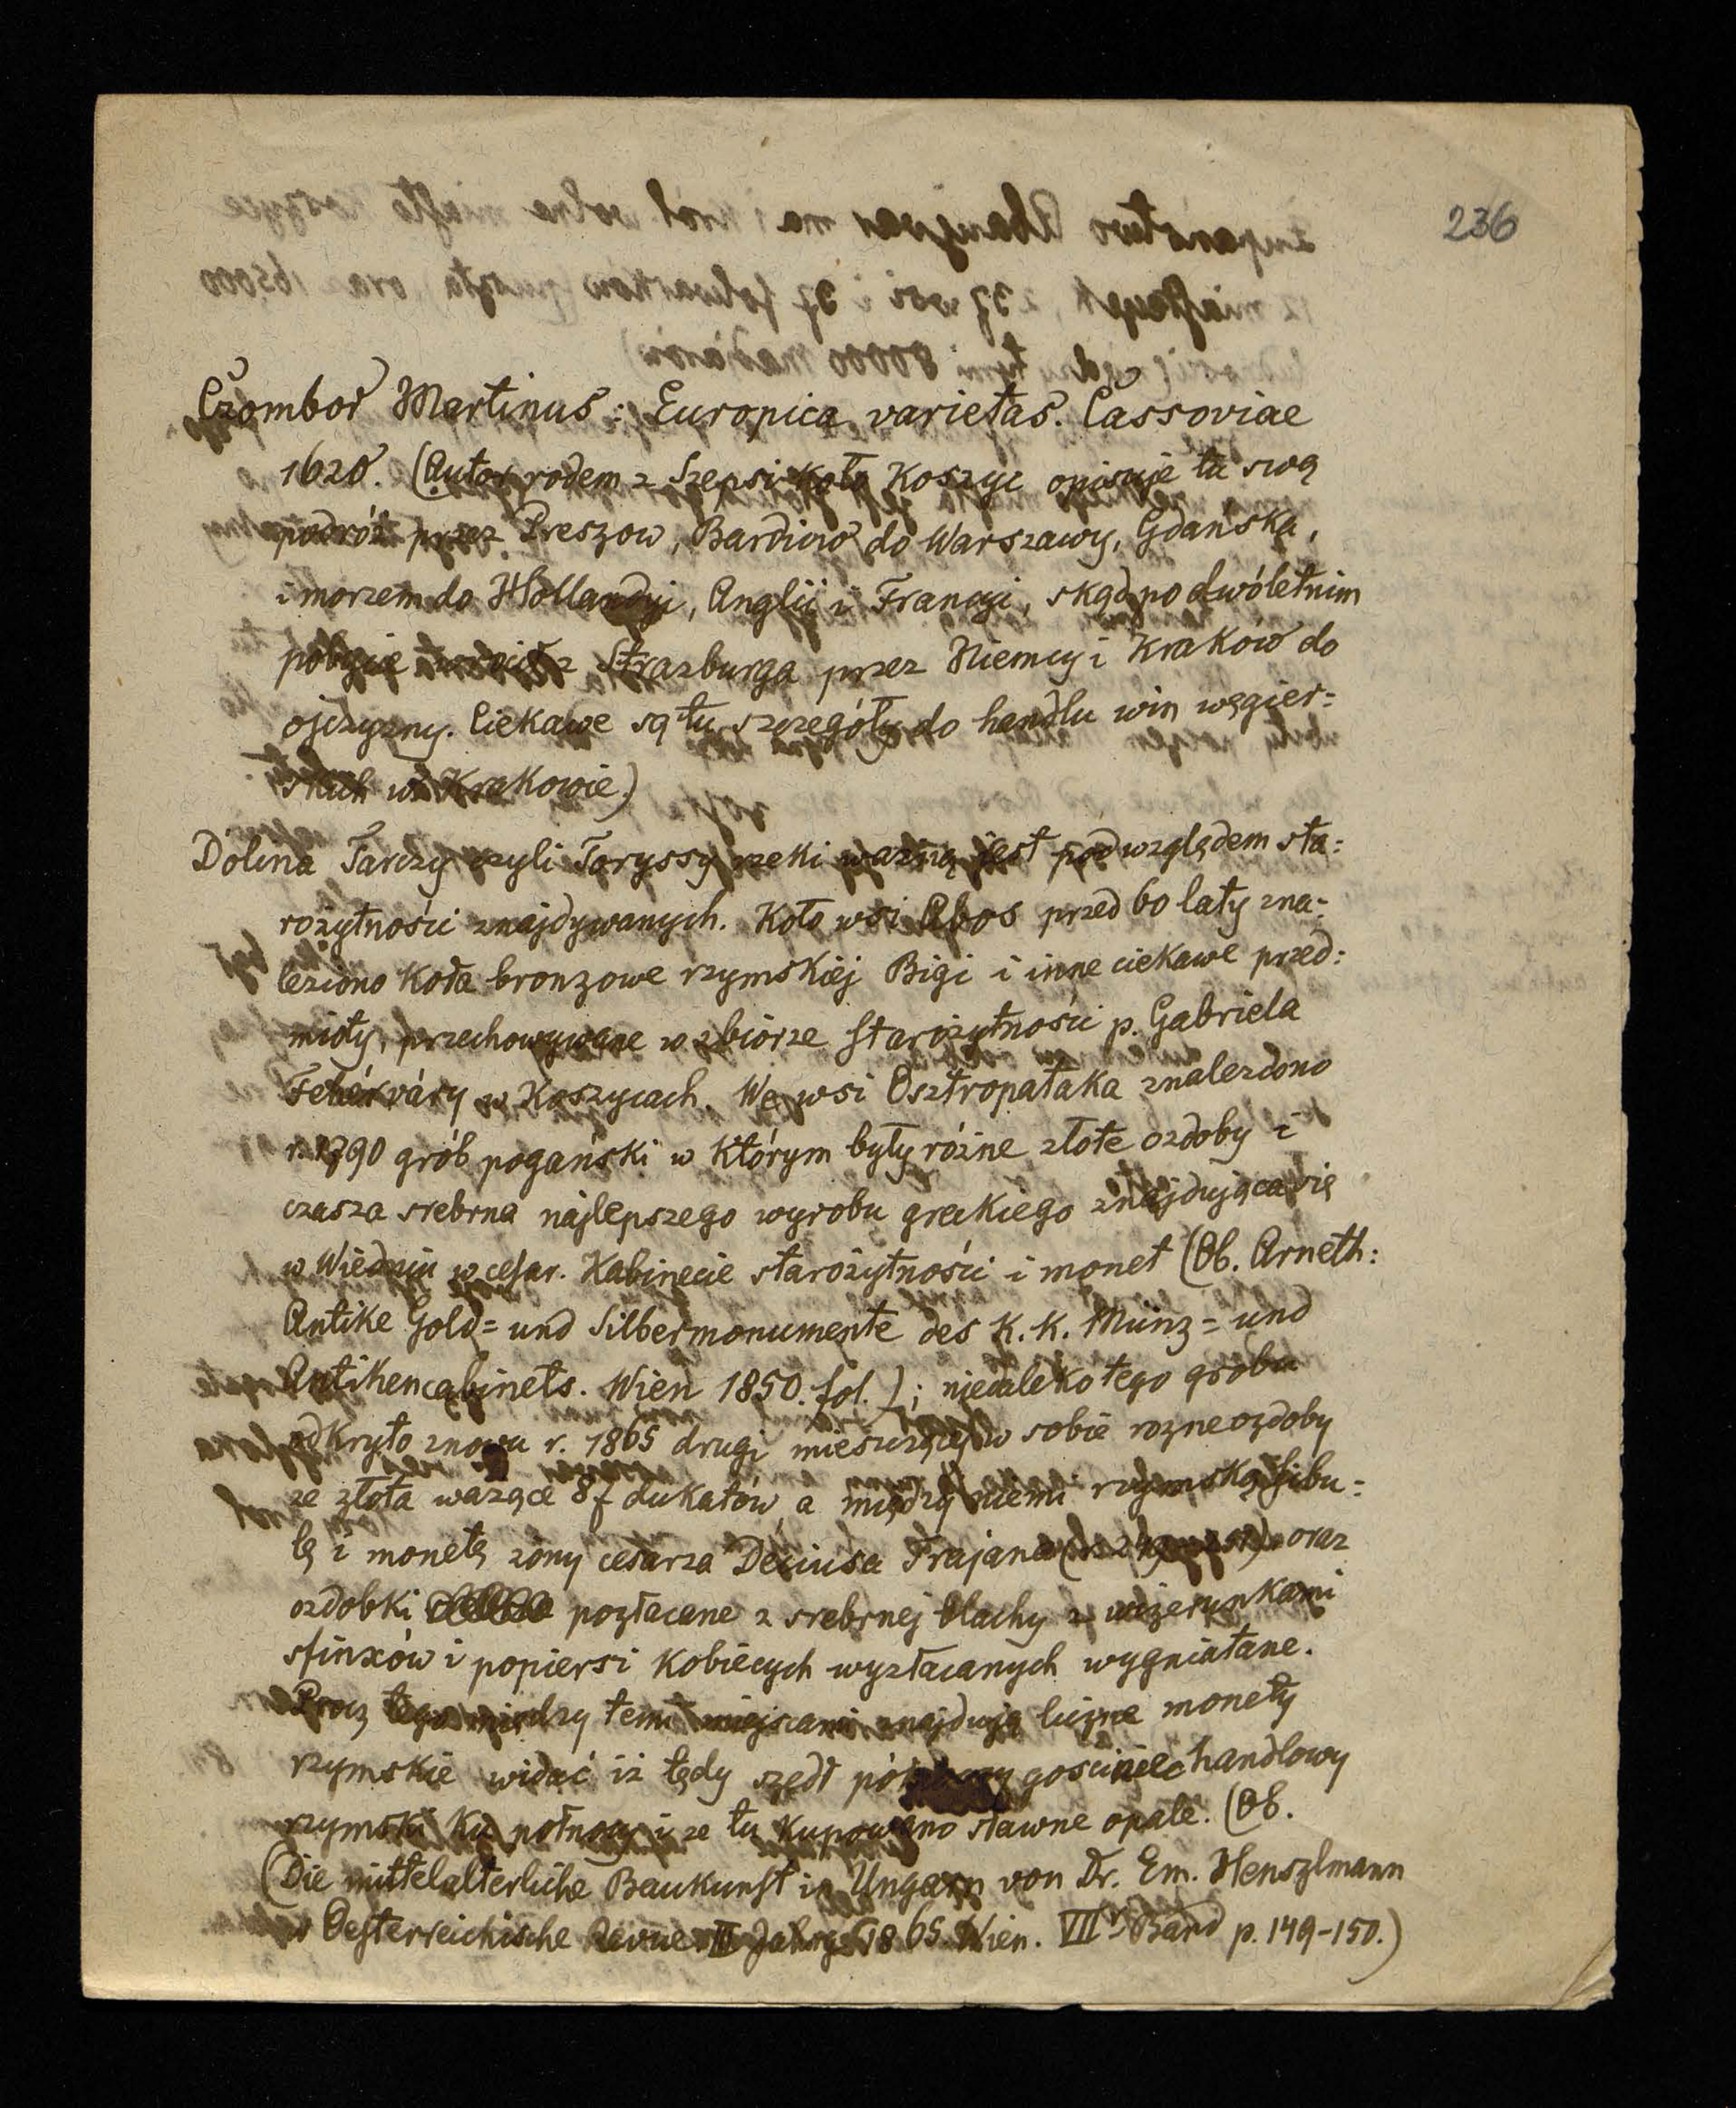 236
Czombor Martinus: Europica varietas. Cassoviae
1620. (Autor rodem z Szepsi koło Koszyc opisuje tu swą
podróż przez Preszow, Bardiow do Warszawy, Gdańska,
i morzem do Hollandyi, Anglii i Francyi, skąd po dwóletnim
pobycie z Strazburga przez Niemcy i Kraków do
ojczyzny. Ciekawe są tu szczegóły do handlu win węgier=
skich w Krakowie.)
Dolina Tarczy czyli Toryssy rzeki ważną jest pod względem sta=
rożytności znajdywanych. Koło wsi Abos przed 60 laty zna=
leziono koła bronzowe rzymskiéj Bigi i inne ciekawe przed=
mioty, przechowywane w zbiorze starożytności p. Gabriela
Fehérváry w Koszycach. We wsi Osztropataka znaleziono
r. 1790 grób pogański w którym były różne złote ozdoby i
czasza srebrna najlepszego wyrobu greckiego znajdująca się
w Wiedniu w cesar. Kabinecie starożytności i monet (Ob. Arneth:
Antike Gold= und Silbermonumente des K. K. Münz= und
Antikencabinets. Wien 1850. fol.); niedaleko tego grobu
odkryto znowu r. 1865 drugi mieszczący w sobie rozne ozdoby
ze złota ważące 87 dukatów, a między niemi rzymską fibu=
lę i monetę żony cesarza Deciusa Trajana oraz
ozdobki pozłacane z srebrnej blachy z wizerunkami
sfinxów i popiersi kobiecych wyzłacanych wygniatane.
Procz tego między temi miejscami znajdują liczne monety
rzymskie widać iż tędy szedł gosciniec handlowy
rzymski ku północy i ze tu kupowano sławne opale. (Ob.
(Die mittelalterliche Baukunst in Ungarn von Dr. Em. Henszlmann
w Oesterreichische Revue III Jahrg. 1865 Wien. VIIr Band p. 149-150.)